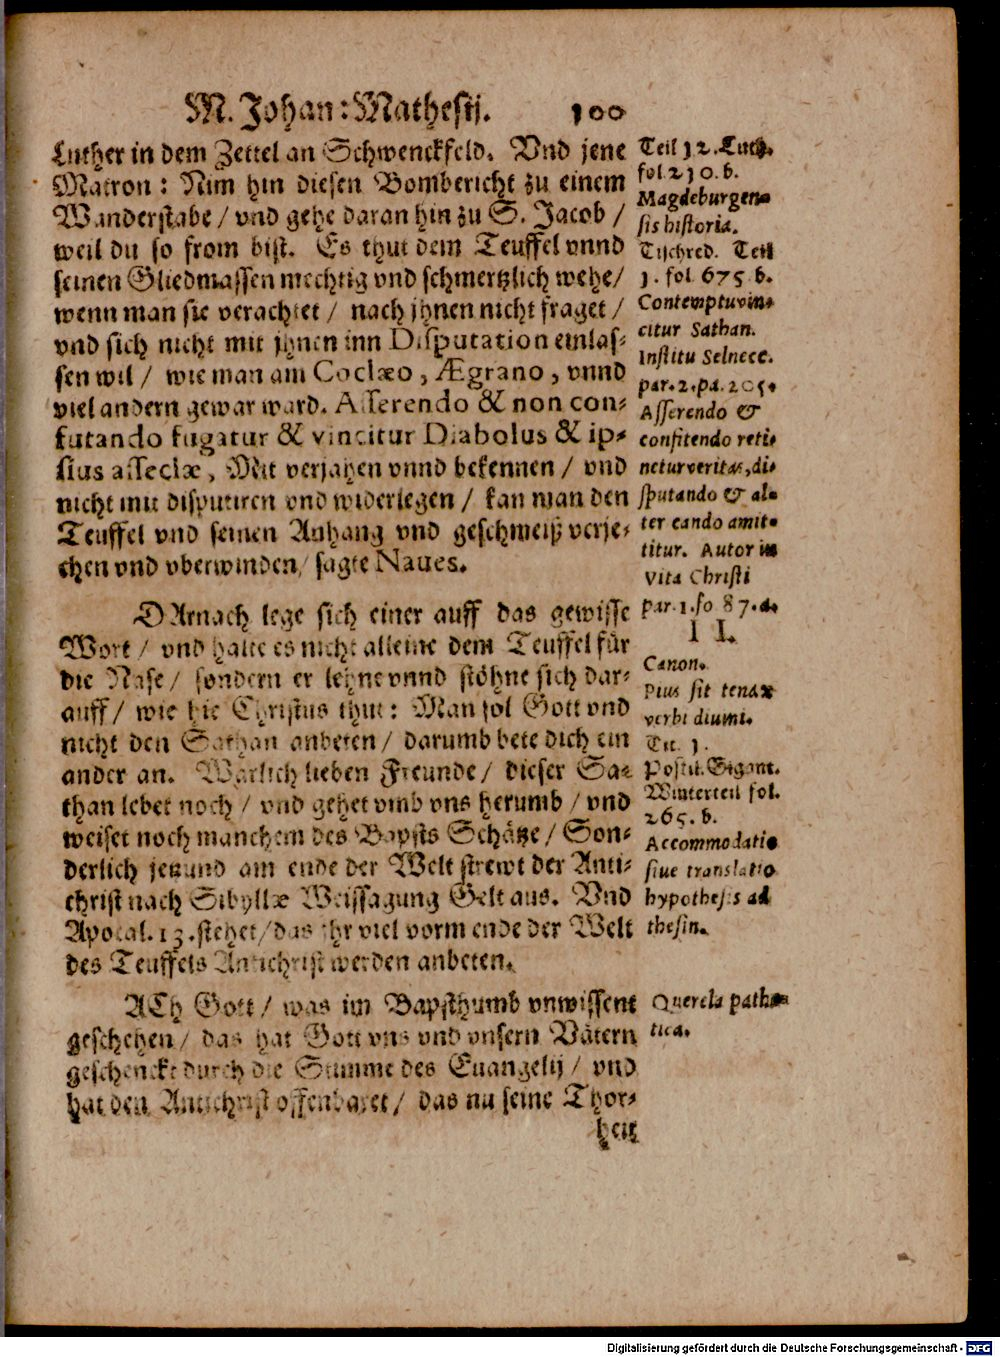 M. Johan: Mathesij. 100
Luther in dem Zettel an Schwenckfeld. Vnd jene
Matron: Nim hin diesen Bombericht zu einem
Wanderstabe / vnd gehe daran hin zu S. Jacob /
weil du so from bist. Es thut dem Teuffel vnnd
seinen Gliedmassen mechtig vnd schmertzlich wehe /
wenn man sie verachtet / nach jhnen nicht fraget /
vnd sich nicht mit jhnen inn Disputation einlas-
sen wil / wie man am Coclæo, Ægrano, vnnd
viel andern gewar ward. Asserendo & non con-
futando fugatur & vincitur Diabolus & ip-
sius asseclæ, Mit verjahen vnnd bekennen / vnd
nicht mit disputiren vnd widerlegen / kan man den
Teuffel vnd seinen Anhang vnd geschmeiß verje-
chen vnd vberwinden / sagte Naues.
DArnach lege sich einer auff das gewisse
Wort / vnd halte es nicht alleine dem Teuffel für
die Nase / sondern er lehne vnnd stöhne sich dar-
auff / wie hie Christus thut: Man sol Gott vnd
nicht den Sathan anbeten / darumb bete dich ein
ander an. Warlich lieben Freunde / dieser Sa-
than lebet noch / vnd gehet vmb vns herumb / vnd
weiset noch manchem des Bapsts Schätze / Son-
derlich jetzund am ende der Welt strewt der Anti-
christ nach Sibyllæ Weissagung Gelt aus. Vnd
Apocal. 13. stehet / das ihr viel vorm ende der Welt
des Teuffels Antichrist werden anbeten.
ACh Gott / was im Bapsthumb vnwissent
geschehen / das hat Gott vns vnd vnsern Vätern
geschenckt durch die Stimme des Euangelij / vnd
hat den Antichrist offenbaret / das nu seine Thor-
heit
Teil 12. Luth.
fol. 210. b.
Magdeburgen-
sis historia.
Tischred. Teil
1. fol. 675. b.
Contemptu vin-
citur Sathan.
Institu Selnecc.
par. 2. pa. 205.
Asserendo &
confitendo reti-
netur veritas, di-
sputando & al-
tercando amit-
titur. Autor in
vita Christi
par. 1. fo 87. a.
II.
Canon.
Pius sit tenax
verbi diuini.
Tit. 1.
Postil. Gigant.
Winterteil fol.
265. b.
Accommodatio
siue translatio
hypothesis ad
thesin.
Querela pathe-
tica.
Digitalisierung gefördert durch die Deutsche Forschungsgemeinschaft - DFG